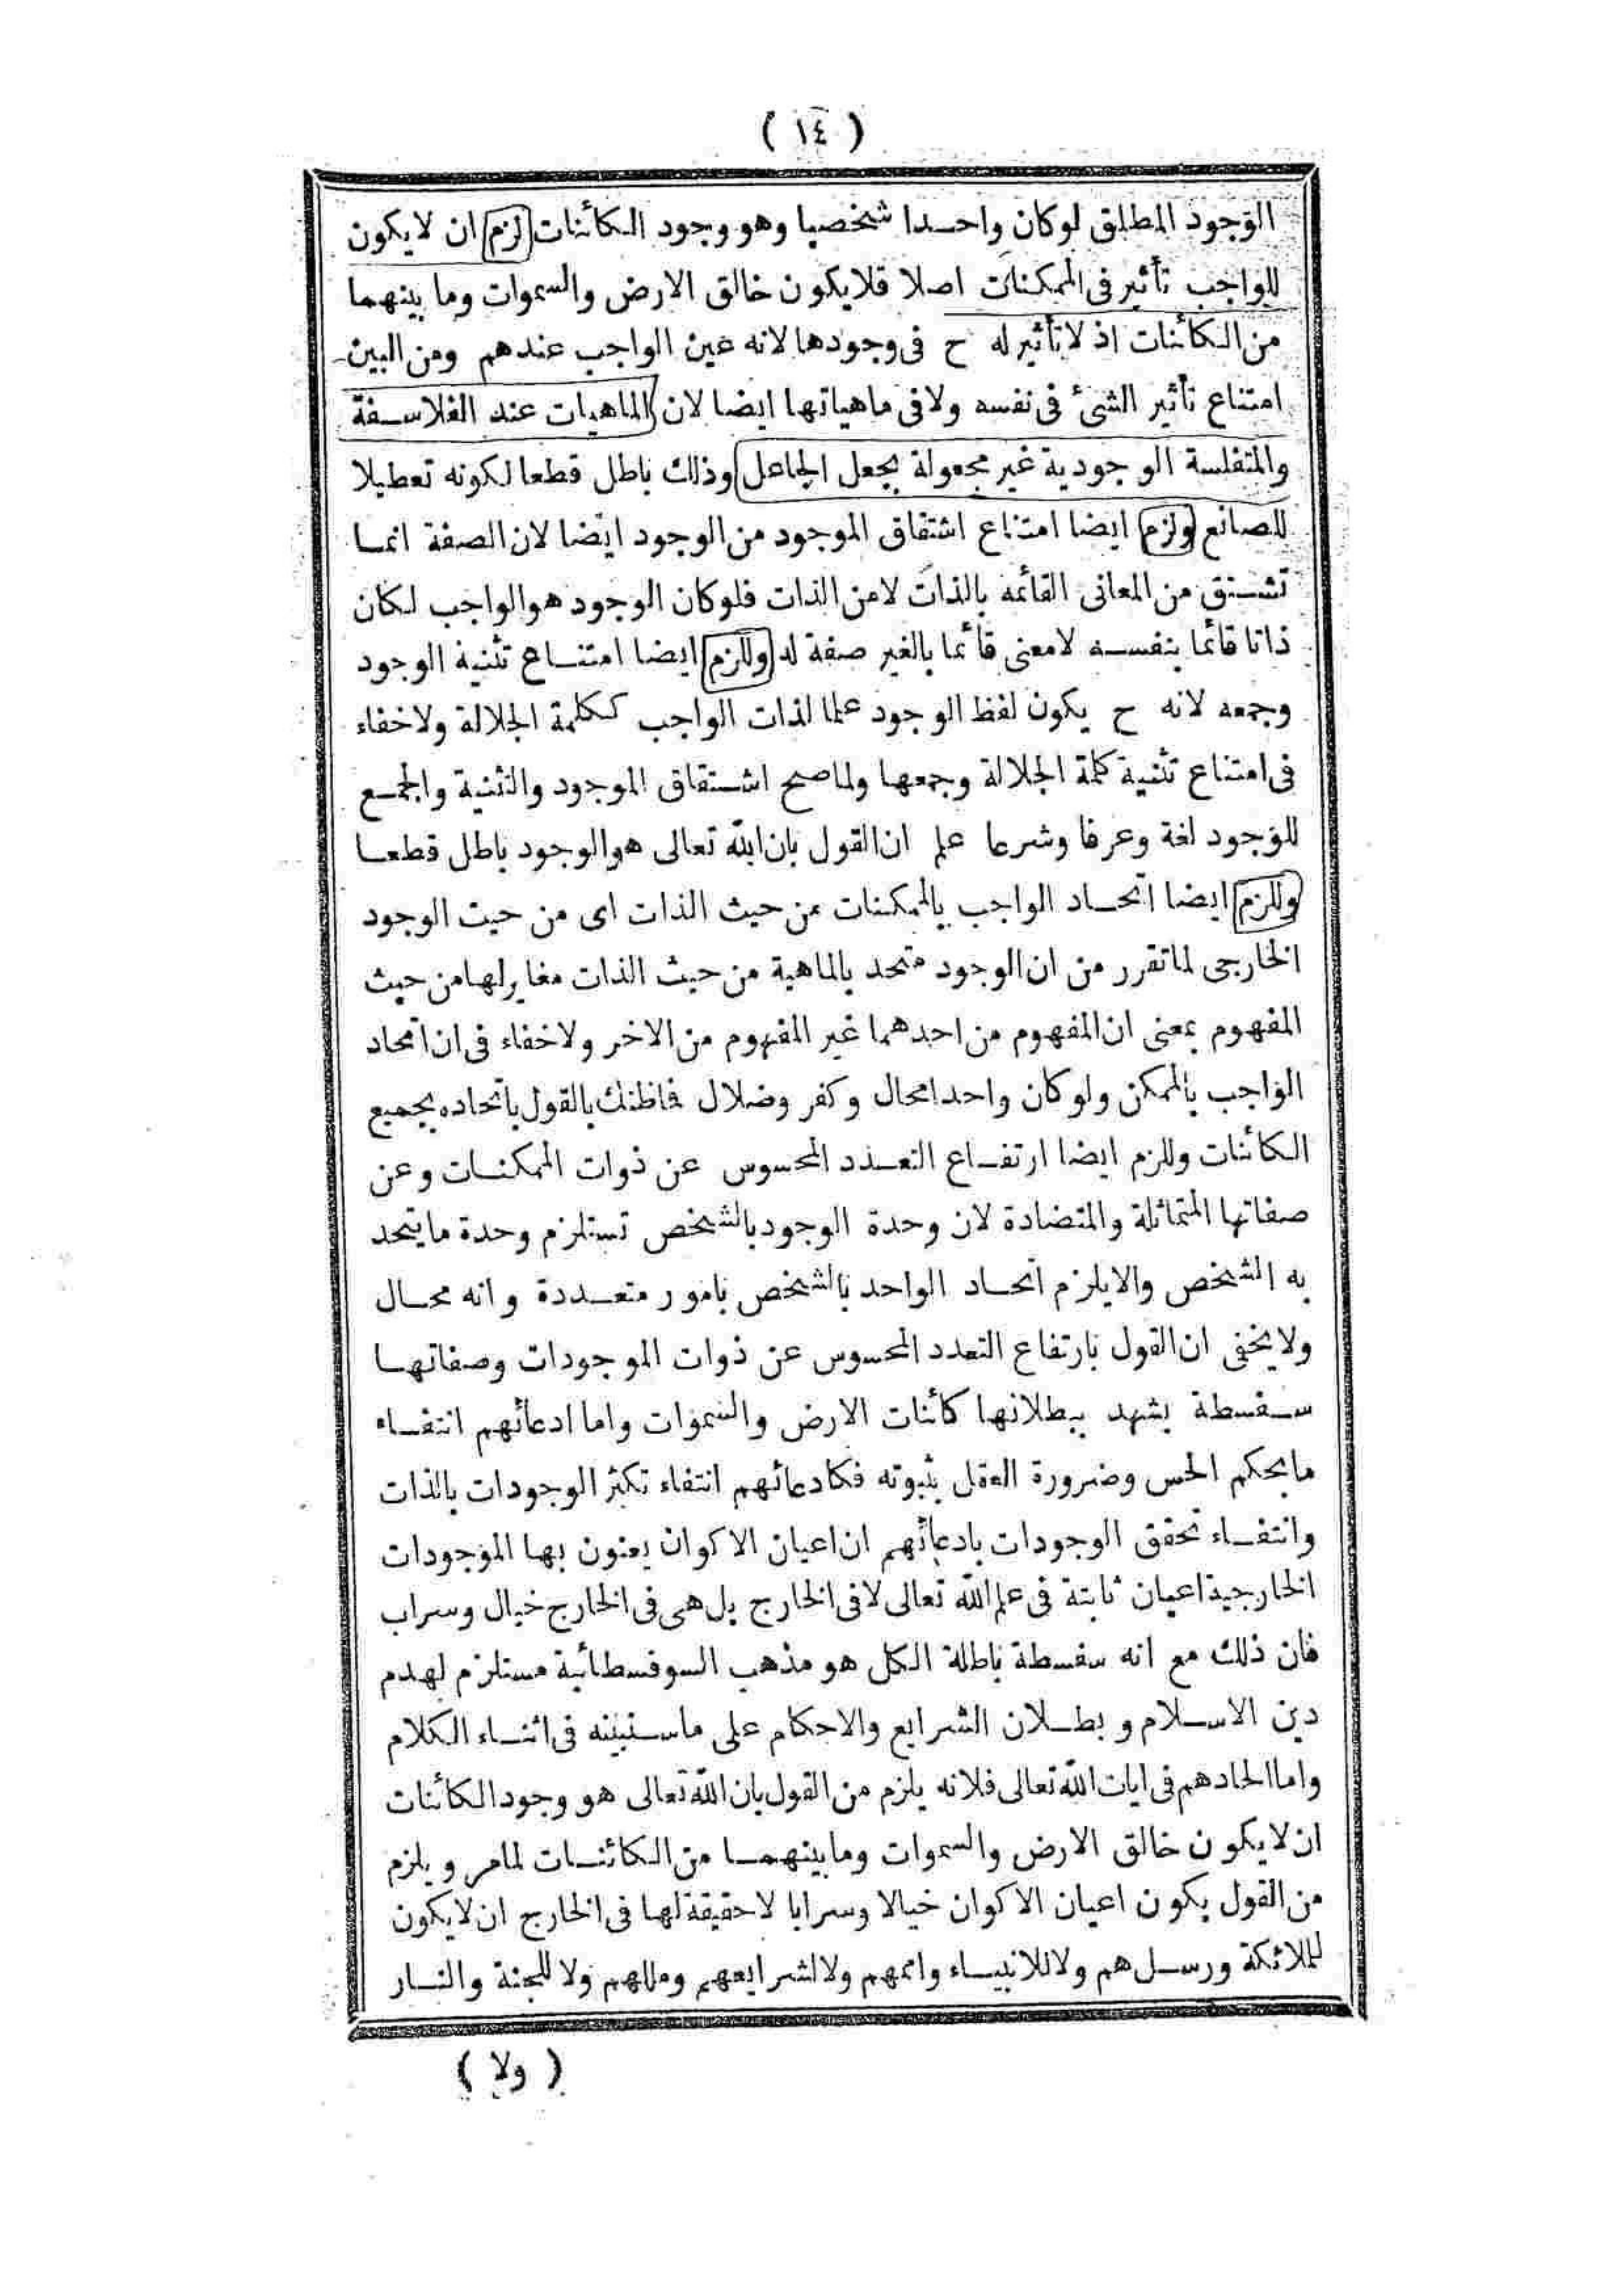 ( ١٤ )
الوجود المطلق لوكان واحدا شخصيا وهو وجود الكائنات لزم ان لايكون
للواجب تأثير فى الممكنات اصلا فلايكون خالق الارض والسموات وما بينهما
من الكائنات اذ لا تأثير له ح فى وجودها لانه عين الواجب عندهم ومن البين
امتناع تأثير الشئ فى نفسه ولا فى ماهياتها ايضا لان الماهيات عند الفلاسفة
والمتفلسة الوجودية غير مجعولة بجعل الجاعل وذلك باطل قطعا لكونه تعطيلا
للصانع ولزم ايضا امتناع اشتقاق الموجود من الوجود ايضا لان الصفة انما
تشتق من المعانى القائمه بالذات لامن الذات فلوكان الوجود هو الواجب لكان
ذاتا قائما بنفسه لامعنى قائما بالغير صفة له وللزم ايضا امتناع تثنية الوجود
وجمعه لانه ح يكون لفظ الوجود علما لذات الواجب ككلمة الجلالة ولاخفاء
فى امتناع تثنية كلمة الجلالة وجمعها ولماصح اشتقاق الموجود والتثنية والجمع
للوجود لغة وعرفا وشرعا علم ان القول بان الله تعالى هو الوجود باطل قطعا
وللزم ايضا اتحاد الواجب بالممكنات من حيث الذات اى من حيث الوجود
الخارجى لما تقرر من ان الوجود متحد بالماهية من حيث الذات مغاير لها من حيث
المفهوم بمعنى ان المفهوم من احدهما غير المفهوم من الاخر ولاخفاء فى ان اتحاد
الواجب بالممكن ولوكان واحدا محال وكفر وضلال فماظنك بالقول باتحاده بجميع
الكائنات وللزم ايضا ارتفاع التعدد المحسوس عن ذوات الممكنات وعن
صفاتها المتماثلة والمتضادة لان وحدة الوجود بالشخص تستلزم وحدة مايتحد
به الشخص والايلزم اتحاد الواحد بالشخص بامور متعددة وانه محال
ولايخفى ان القول بارتفاع التعدد المحسوس عن ذوات الموجودات وصفاتها
سفسطة يشهد ببطلانها كائنات الارض والسموات واما ادعائهم انتفاء
مايحكم الحس وضرورة العقل بثبوته فكادعائهم انتفاء تكثر الوجودات بالذات
وانتفاء تحقق الوجودات بادعائهم ان اعيان الاكوان يعنون بها الموجودات
الخارجية اعيان ثابتة فى علم الله تعالى لا فى الخارج بل هى فى الخارج خيال وسراب
فان ذلك مع انه سفسطة باطلة الكل هو مذهب السوفسطائية مستلزم لهدم
دين الاسلام وبطلان الشرايع والاحكام على ماسنبينه فى اثناء الكلام
واما الحادهم فى ايات الله تعالى فلانه يلزم من القول بان الله تعالى هو وجود الكائنات
ان لايكون خالق الارض والسموات ومابينهما من الكائنات لمامر ويلزم
من القول بكون اعيان الاكوان خيالا وسرابا لاحقيقة لها فى الخارج ان لايكون
للملائكة ورسلهم ولاللانبياء واممهم ولالشرايعهم ومللهم ولا للجنة والنار
( ولا )